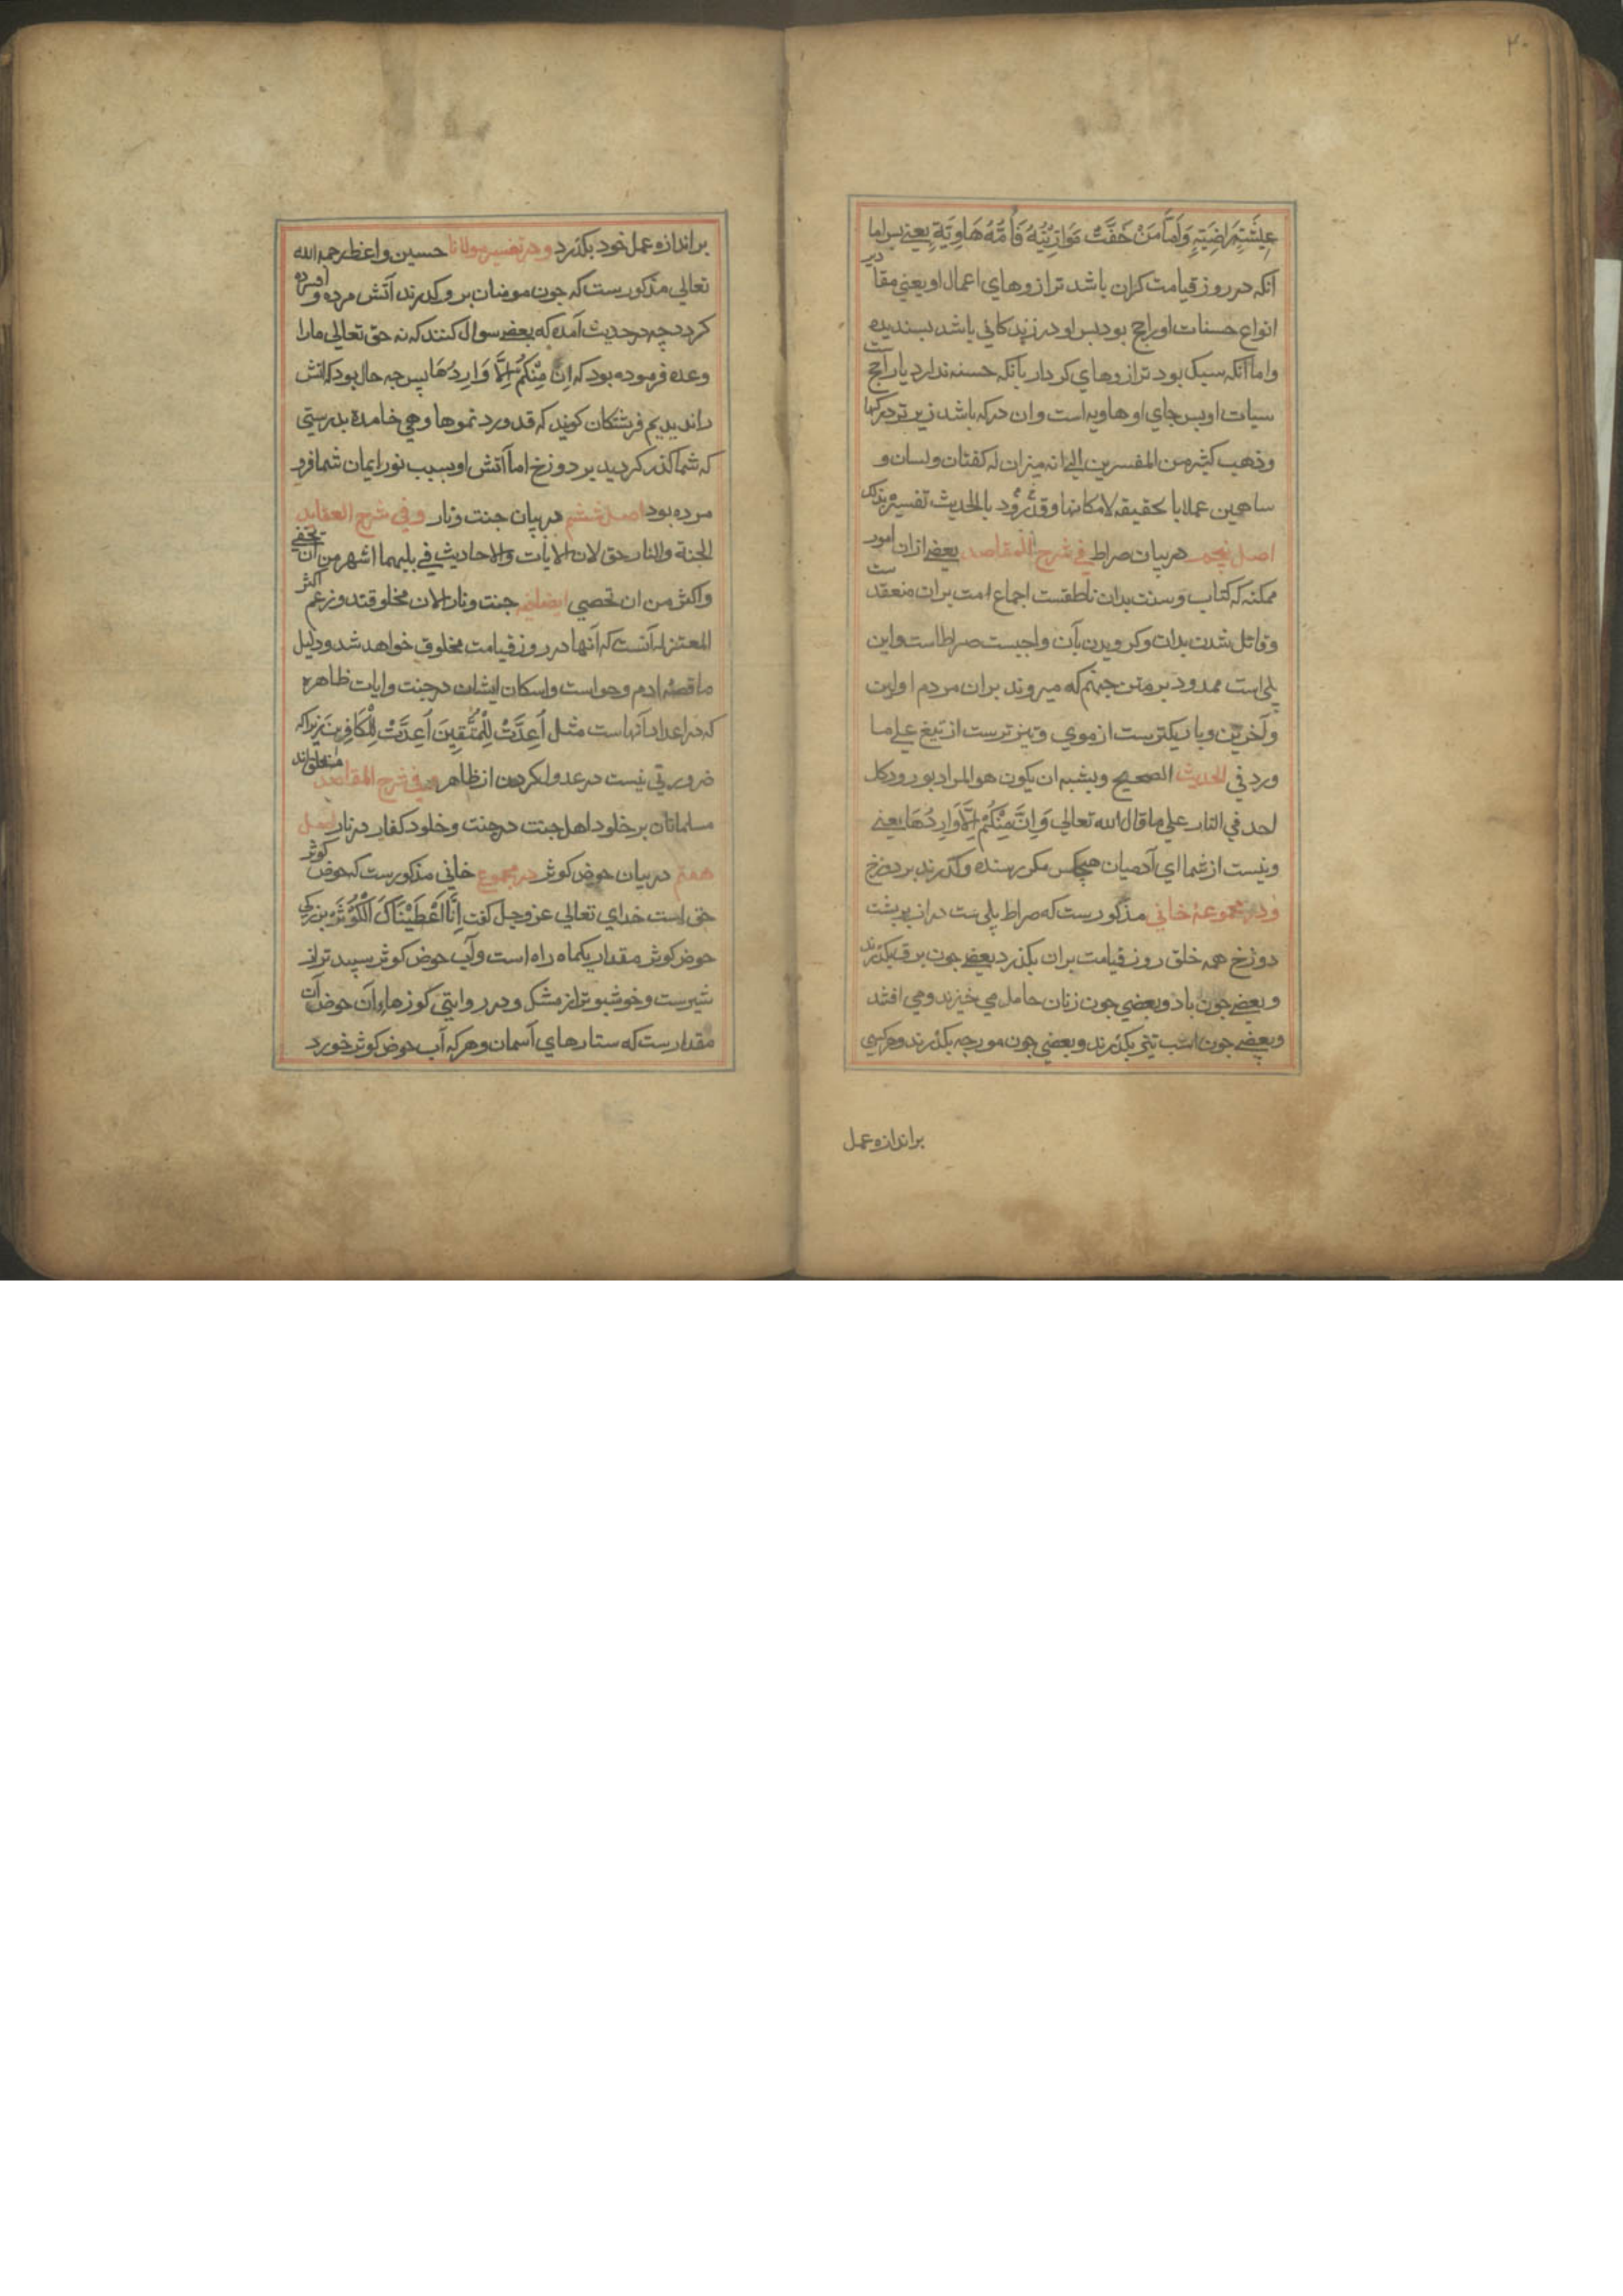 ۲۰
عِيشَتِهٍ رَاضِيَتِهٍ وَاَمَّا مَنْ خَفَّتْ مَوَازِيْنُهُ فَاُمُّهُ هَاوِيَة يعنے پس اما
آنكه در روز قيامت كران باشد ترازوهاي اعمال او يعني مقادير
انواع حسنات او راجح بود پس او در زندكاني باشد پسنديده
واما آنكه سبك بود ترازوهاي كردار يا آنكه حسنه ندارد يا راجحست
سيات او پس جاي او هاويه است وان دركه باشد زيرتر دركها
وذهب كثيره من المفسرين الے انه ميزان له كفتان ولسان و
ساهين عملا با بحقيقه لامكانها وقد ورد بالحديث تفسيره بذلك
اصل پنجم در بيان صراط في شرح المقاصد بعضے ازان امور
ممكنه كه كتاب وسنت بدان ناطقست اجماع امت بران منعقدست
وقائل شدن بدان وكرويدن بآن واجبست صراط است واين
پلي است ممدود بر متن جهنم كه ميروند بران مردم اولين
وآخرين وباريكترست از موي وتيزترست از تيغ علے ما
ورد في الحديث الصحيح ويشبه ان يكون هو المراد بورود كل
احد في النار علي ما قال الله تعالي وَاِنْ مِّنْكُمْ اِلَّا وَارِدُهَا يعنے
ونيست از شما اي آدميان هيچكس مكر رسنده وكذرند بر دوزخ
ودر مجموعهٔ خاني مذكورست كه صراط پلي ست دراز بر پشت
دوزخ همه خلق روز قيامت بران بكذرد بعضے جون برق بكذرند
وبعضے جون باد وبعضي جون زنان حامل مي خيزند ومي افتند
وبعضے جون اسب تيزي بكذرند وبعضي جون مورجه بكذرند وهر كسي
براندازه عمل
براندازه عمل خود بكذرد ودر تفسير مولانا حسين واعظ رحمه الله
تعالي مذكورست كه جون مومنان برو كذرند آتش مرده وافسرده
كردد چه در حديث آمده كه بعضے سوال كنند كه نه حق تعالي مارا
وعده فرموده بود كه اِنْ مِّنْكُمْ اِلَّا وَارِدُهَا پس چه حال بود كه اتش
را نديديم فرشتكان كويند كه قد ورد تموها وهي خامدة بدرستي
كه شما كذر كرديد بر دوزخ اما آتش او بسبب نور ايمان شما فرو
مرده بود اصل ششم در بيان جنت ونار وفي شرح العقايد
الجنة والنار حق لان الايات والاحاديث في بليهما اشهر من ان تخفے
واكثر من ان تحصي ايضا فيه جنت ونار الان مخلوقند وزعم اكثر
المعتزله آنست كه آنها در روز قيامت مخلوق خواهد شد ودليل
ما قصهٔ ادم وحواست واسكان ايشان در جنت وايات ظاهره
كه در اعداد آنهاست مثل اُعِدَّتْ لِلْمُتَّقِينَ اُعِدَّتْ لِلْكَافِرِينَ زيراكه
ضرورتي نيست در عدول كردن از ظاهر وفي شرح المقاصد متفق اند
مسلمانان بر خلود اهل جنت در جنت وخلود كفار در نار اصل
هفتم در بيان حوض كوثر در مجموع خاني مذكورست كه حوض كوثر
حق است خداي تعالي عز وجل كفت اِنَّا اَعْطَيْنَاكَ الْكَوْثَرَ بزركي
حوض كوثر مقدار يكماه راه است وآب حوض كوثر سپيدتر از
شيرست وخوشبوتر از مشك ودر روايتي كوزهاء آن حوض آن
مقدارست كه ستارهاي آسمان وهر كه آب حوض كوثر خورد